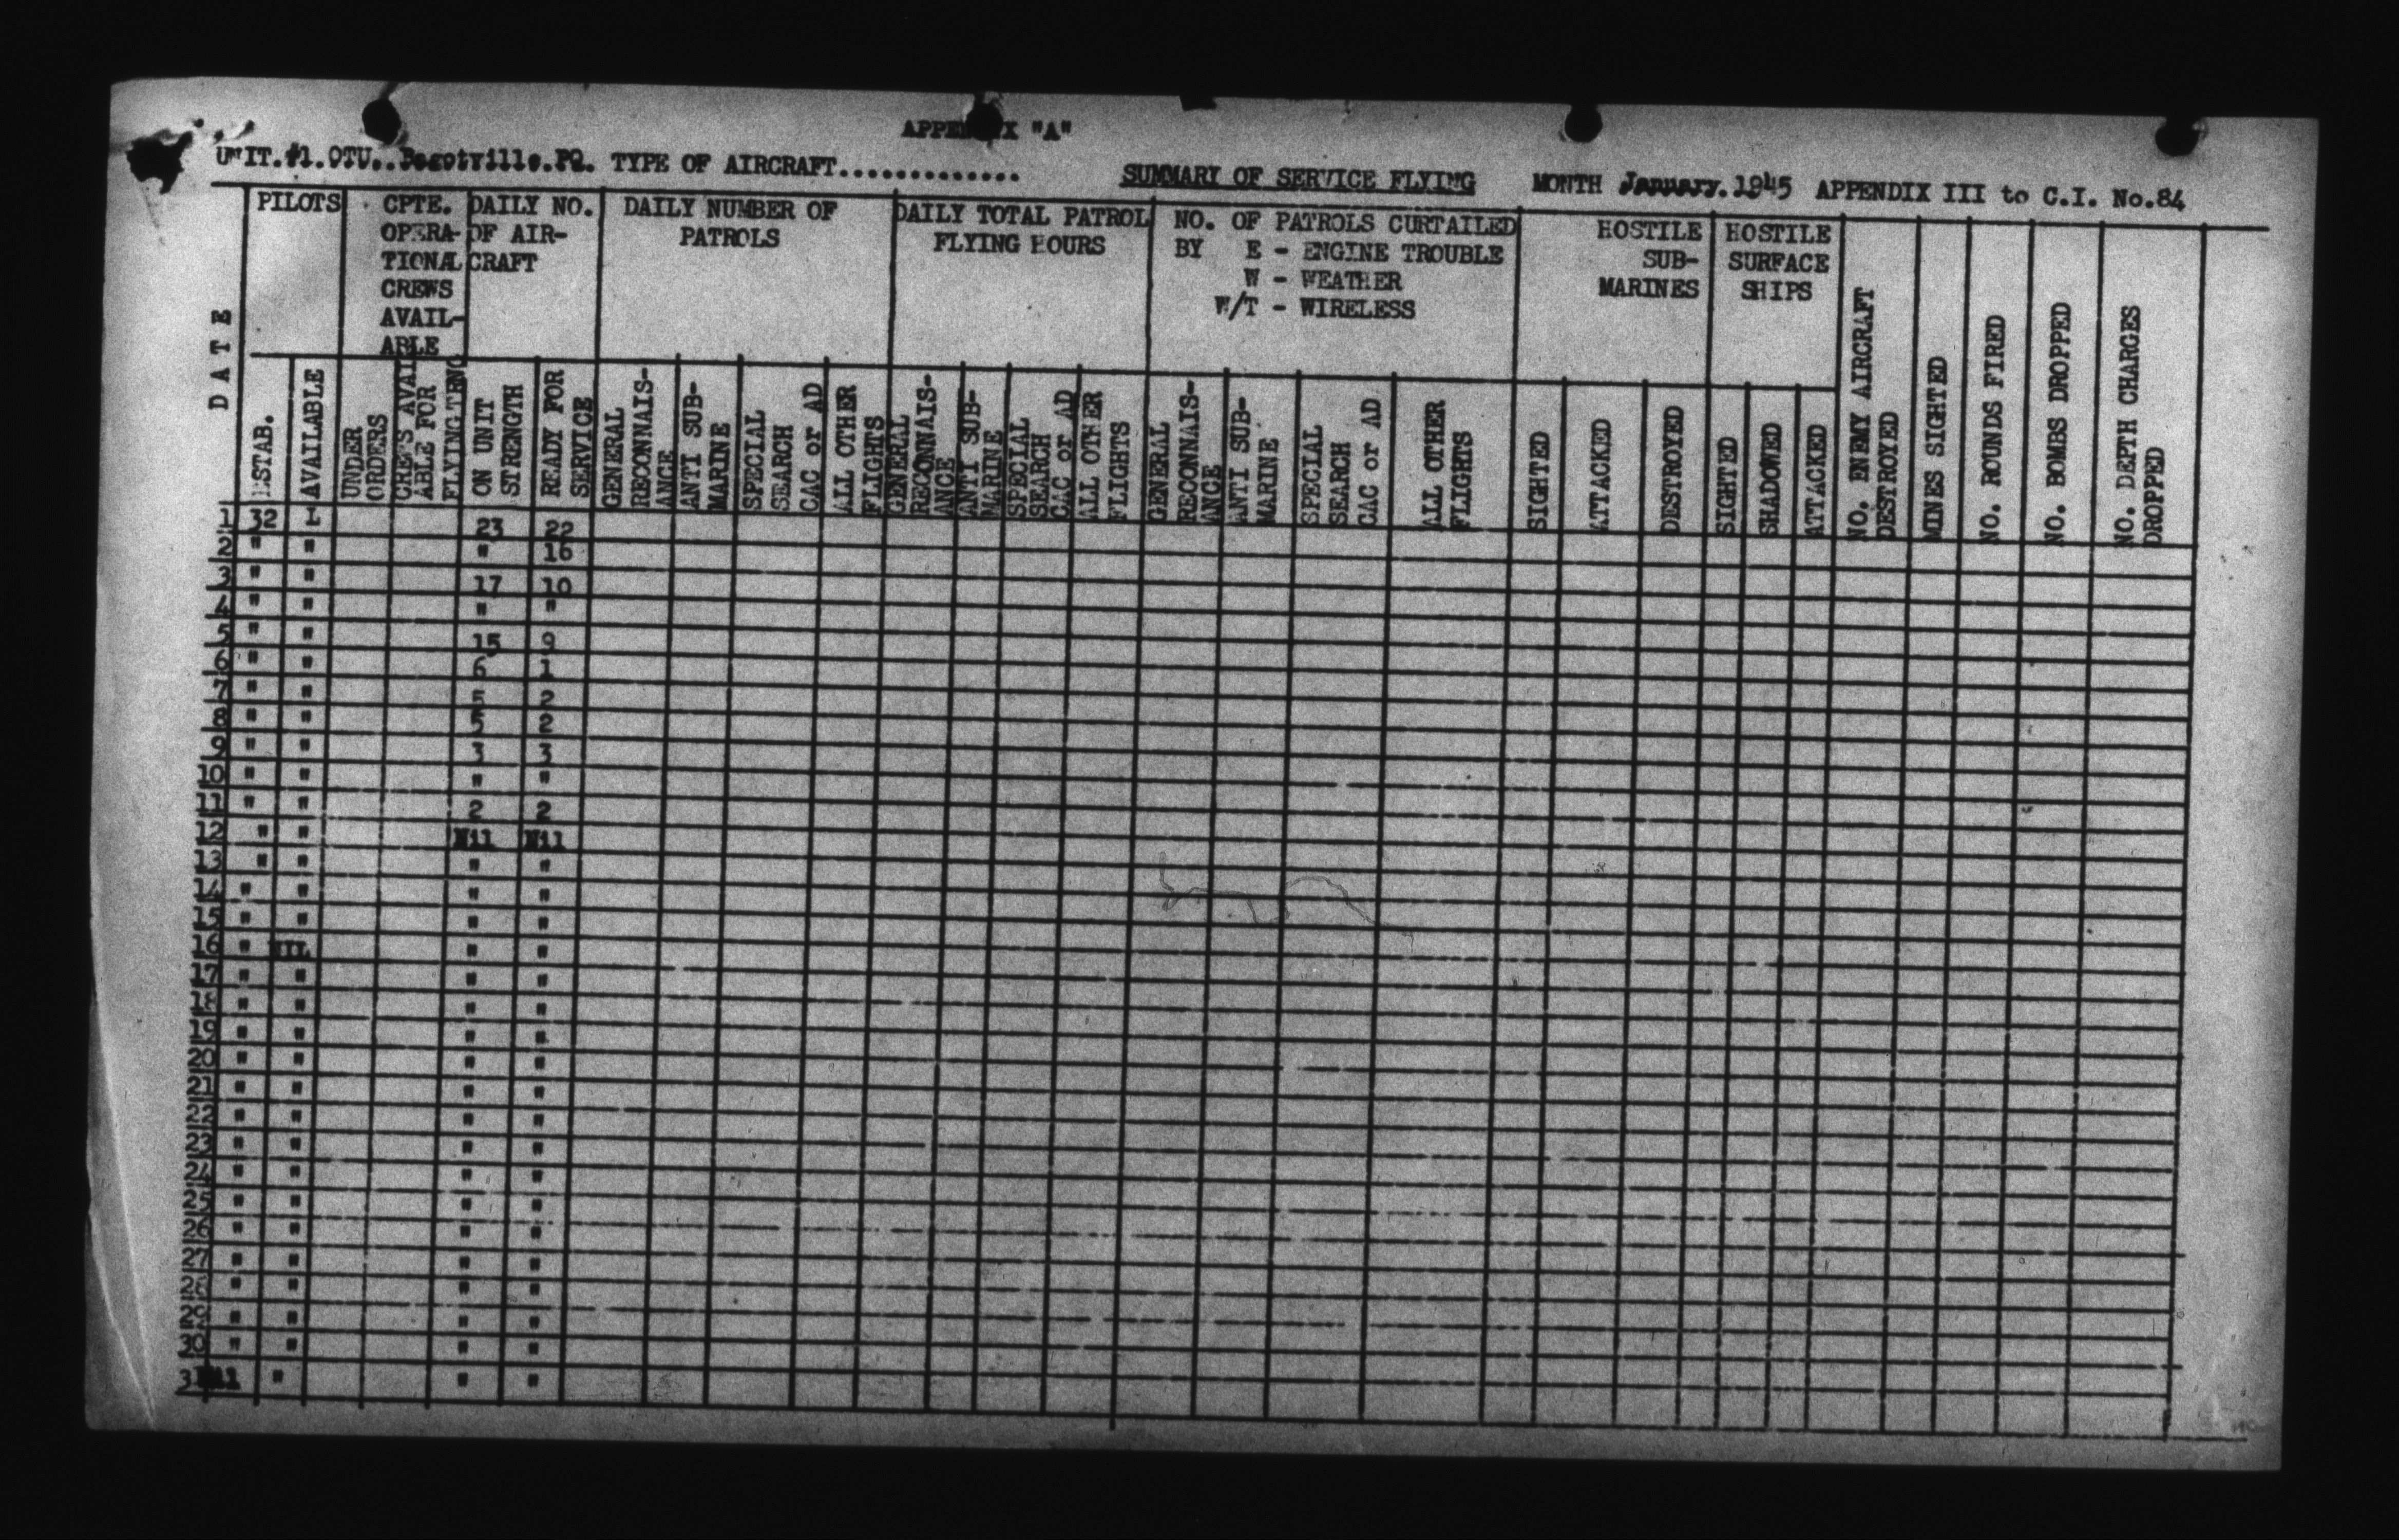 APPENDIX "A"
UNIT.#1.OTU..Bagotville.PQ. TYPE OF AIRCRAFT............. SUMMARY OF SERVICE FLYING MONTH January.1945 APPENDIX III to C.I. No.84
DATE
PILOTS
CPTE. OPERA-TIONAL CREWS AVAIL-ABLE
DAILY NO. OF AIR-CRAFT
DAILY NUMBER OF PATROLS
DAILY TOTAL PATROL FLYING HOURS
NO. OF PATROLS CURTAILED
BY E - ENGINE TROUBLE
W - WEATHER
W/T - WIRELESS
HOSTILE SUB-MARINES
HOSTILE SURFACE SHIPS
NO. ENEMY AIRCRAFT DESTROYED
MINES SIGHTED
NO. ROUNDS FIRED
NO. BOMBS DROPPED
NO. DEPTH CHARGES DROPPED
ESTAB.
AVAILABLE
UNDER ORDERS
CREWS AVAIL ABLE FOR FLYING TRNG
ON UNIT STRENGTH
READY FOR SERVICE
GENERAL RECONNAIS-ANCE
ANTI SUB-MARINE
SPECIAL SEARCH CAC or AD
ALL OTHER FLIGHTS
GENERAL RECONNAIS-ANCE
ANTI SUB-MARINE
SPECIAL SEARCH CAC or AD
ALL OTHER FLIGHTS
GENERAL RECONNAIS-ANCE
ANTI SUB-MARINE
SPECIAL SEARCH CAC or AD
ALL OTHER FLIGHTS
SIGHTED
ATTACKED
DESTROYED
SIGHTED
SHADOWED
ATTACKED
1 32 23 22
2 " " " 16
3 " " 17 10
4 " " " "
5 " " 15 9
6 " " 6 1
7 " " 5 2
8 " " 5 2
9 " " 3 3
10 " " " "
11 " " 2 2
12 " " Nil Nil
13 " " " "
14 " " " "
15 " " " "
16 " NIL " "
17 " " " "
18 " " " "
19 " " " "
20 " " " "
21 " " " "
22 " " " "
23 " " " "
24 " " " "
25 " " " "
26 " " " "
27 " " " "
28 " " " "
29 " " " "
30 " " " "
31 Nil " " "